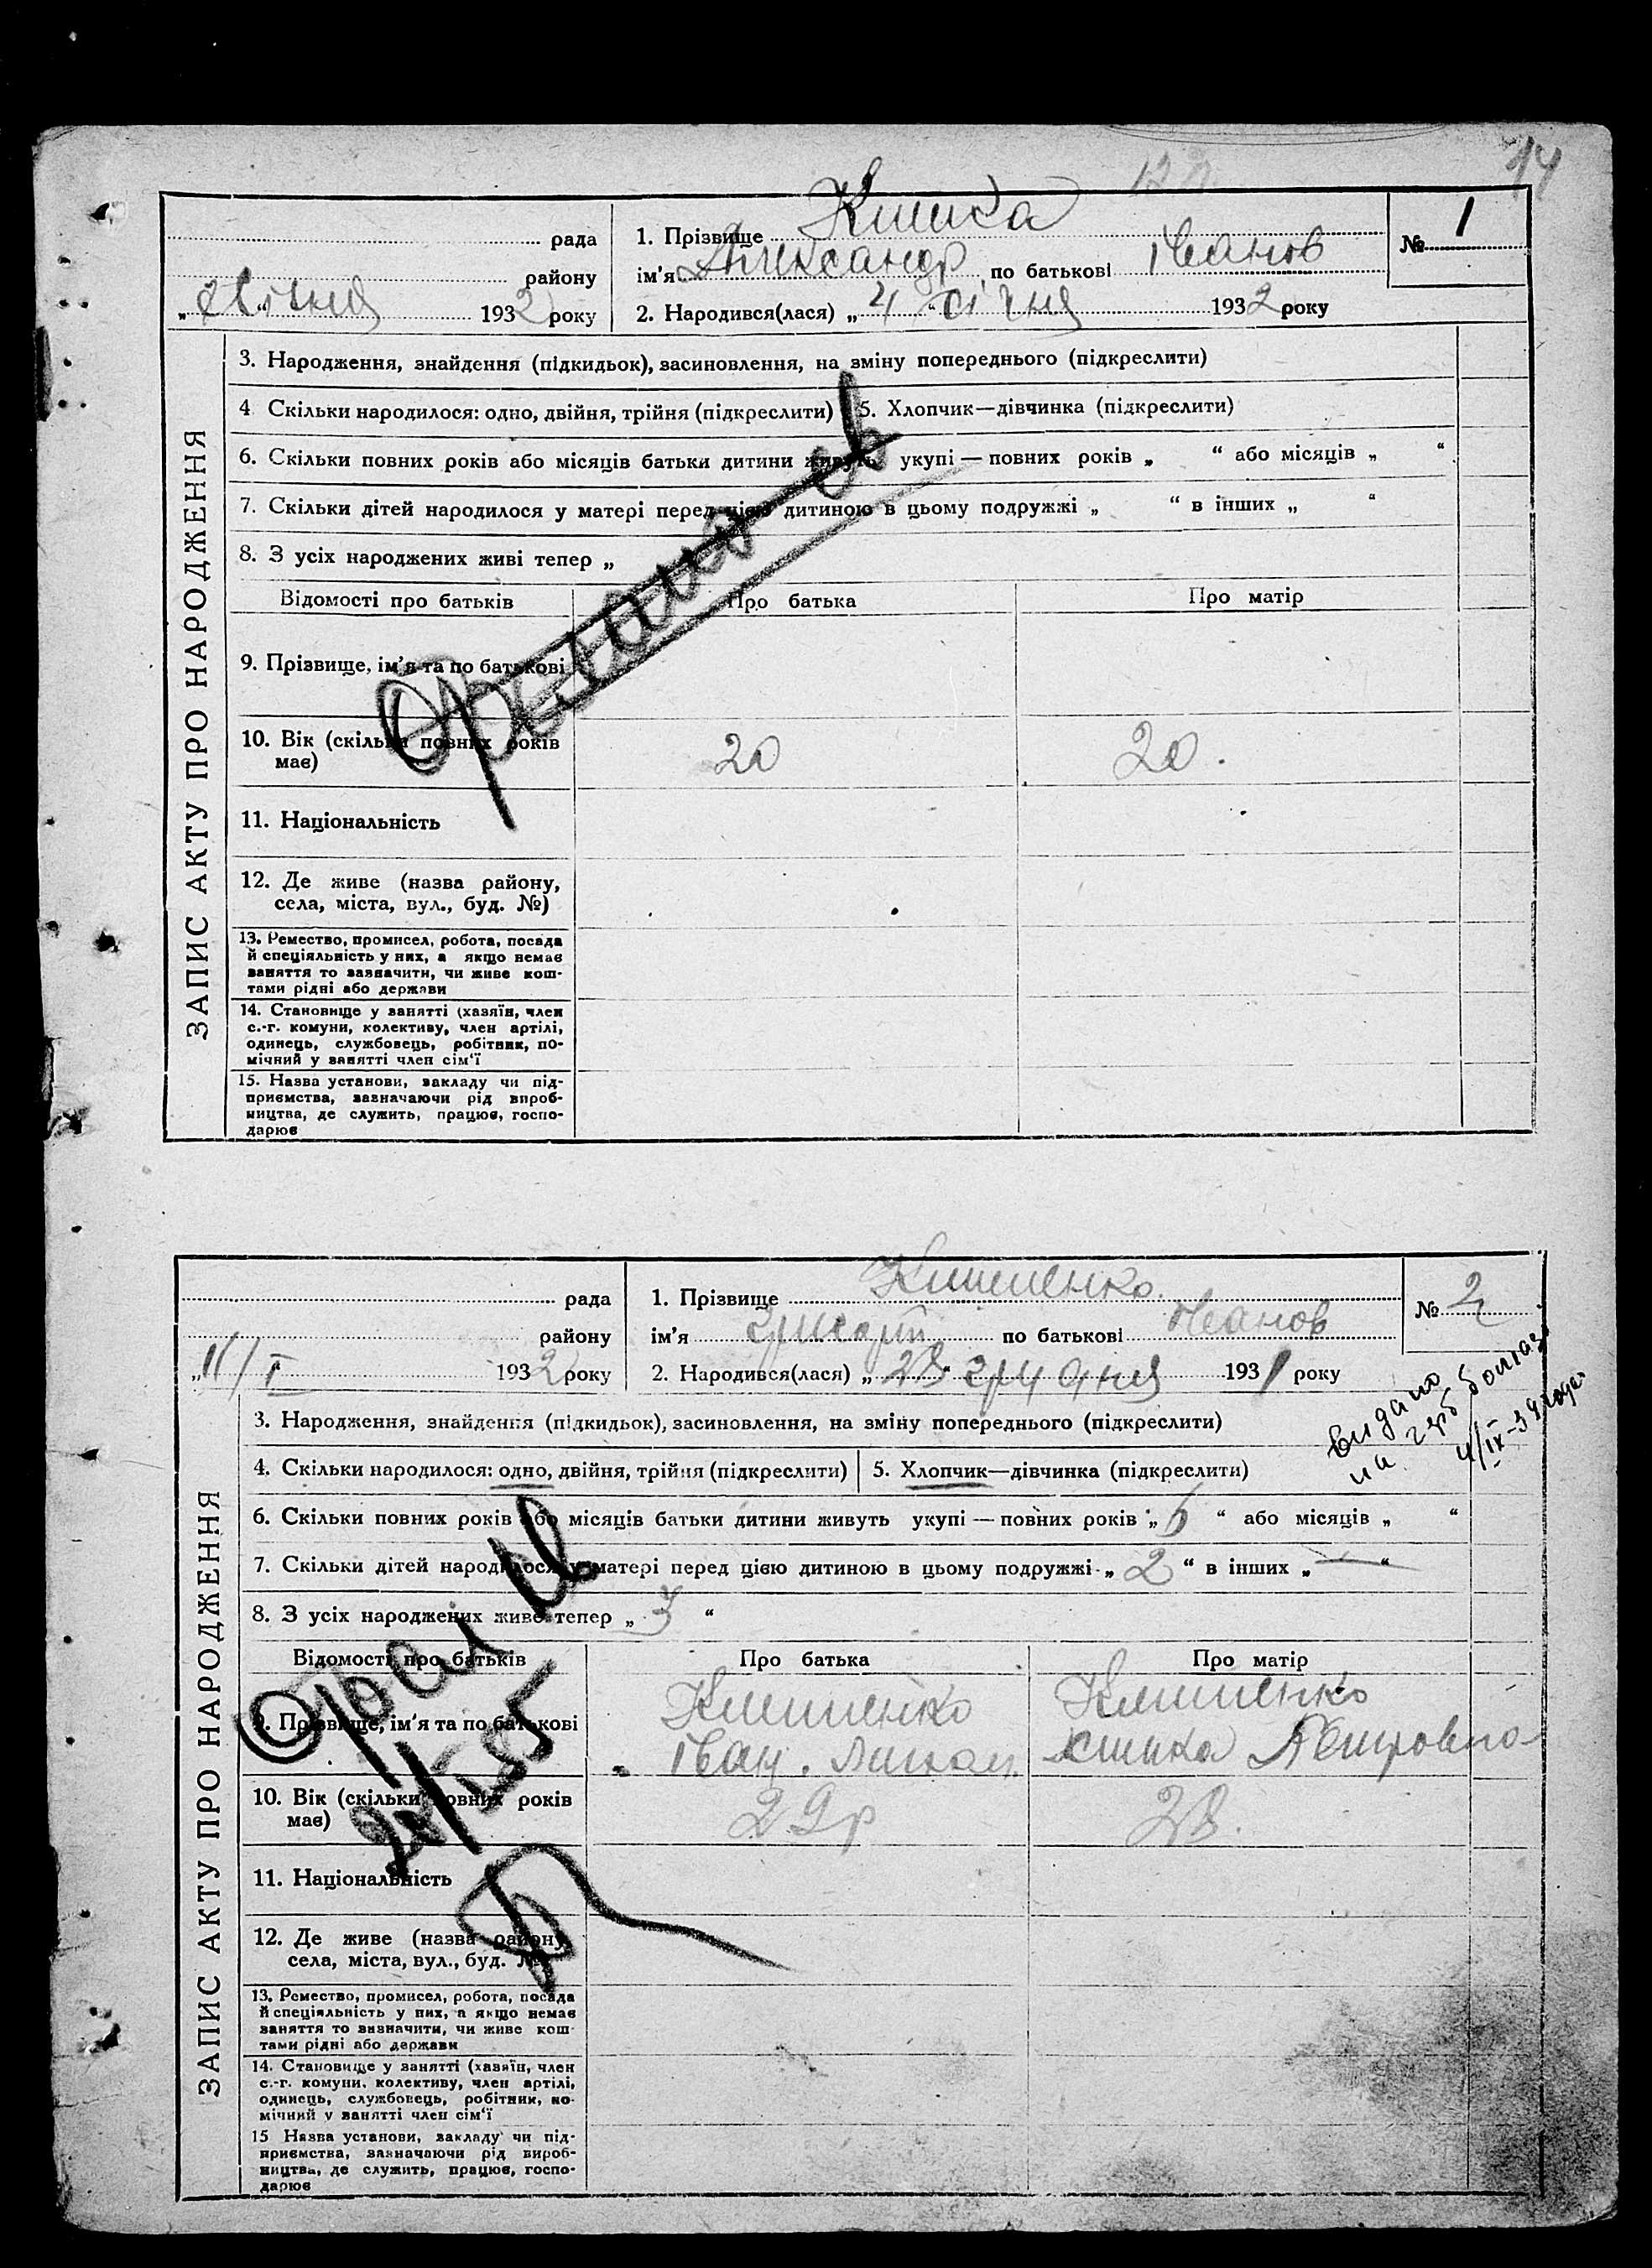 14
рада
району
1932 року
1. Прізвище
ім'я Александр по батькові Іванов
2. Народився(лася) „4“ січня 1932 року
№ 1
ЗАПИС АКТУ ПРО НАРОДЖЕННЯ
3. Народження, знайдення (підкидьок), засиновлення, на зміну попереднього (підкреслити)
4. Скільки народилося: одно, двійня, трійня (підкреслити) 5. Хлопчик—дівчинка (підкреслити)
6. Скільки повних років або місяців батьки дитини живуть укупі — повних років „ “ або місяців „ “
7. Скільки дітей народилося у матері перед цією дитиною в цьому подружжі „ “ в інших „ “
8. З усіх народжених живі тепер „
Відомості про батьків Про батька Про матір
9. Прізвище, ім'я та по батькові
10. Вік (скільки повних років 20 20.
має)
11. Національність
12. Де живе (назва району,
села, міста, вул., буд. №)
13. Ремество, промисел, робота, посада
й спеціяльність у них, а якщо немає
заняття то зазначити, чи живе кош-
тами рідні або держави
14. Становище у занятті (хазяїн, член
с.-г. комуни, колективу, член артілі,
одинець, службовець, робітник, по-
мічний у занятті член сім'ї
15. Назва установи, закладу чи під-
приємства, зазначаючи рід вироб-
ництва, де служить, працює, госпо-
дарює
рада
району
„11/I 1932 року
1. Прізвище
ім'я по батькові Іванов
2. Народився(лася) „28“ грудня 1931 року
№ 2
видано
4/IX-39 года
ЗАПИС АКТУ ПРО НАРОДЖЕННЯ
3. Народження, знайдення (підкидьок), засиновлення, на зміну попереднього (підкреслити)
4. Скільки народилося: одно, двійня, трійня (підкреслити) 5. Хлопчик—дівчинка (підкреслити)
6. Скільки повних років або місяців батьки дитини живуть укупі — повних років „6“ або місяців „ “
7. Скільки дітей народилося у матері перед цією дитиною в цьому подружжі „2“ в інших „—“
8. З усіх народжених живе тепер „3“
Відомості про батьків Про батька Про матір
9. Прізвище, ім'я та по батькові
Іван Петровна
10. Вік (скільки повних років 29р 28.
має)
11. Національність
12. Де живе (назва району,
села, міста, вул., буд. №)
13. Ремество, промисел, робота, посада
й спеціяльність у них, а якщо немає
заняття то зазначити, чи живе кош-
тами рідні або держави
14. Становище у занятті (хазяїн, член
с.-г. комуни, колективу, член артілі,
одинець, службовець, робітник, по-
мічний у занятті член сім'ї
15 Назва установи, закладу чи під-
приємства, зазначаючи рід вироб-
ництва, де служить, працює, госпо-
дарює